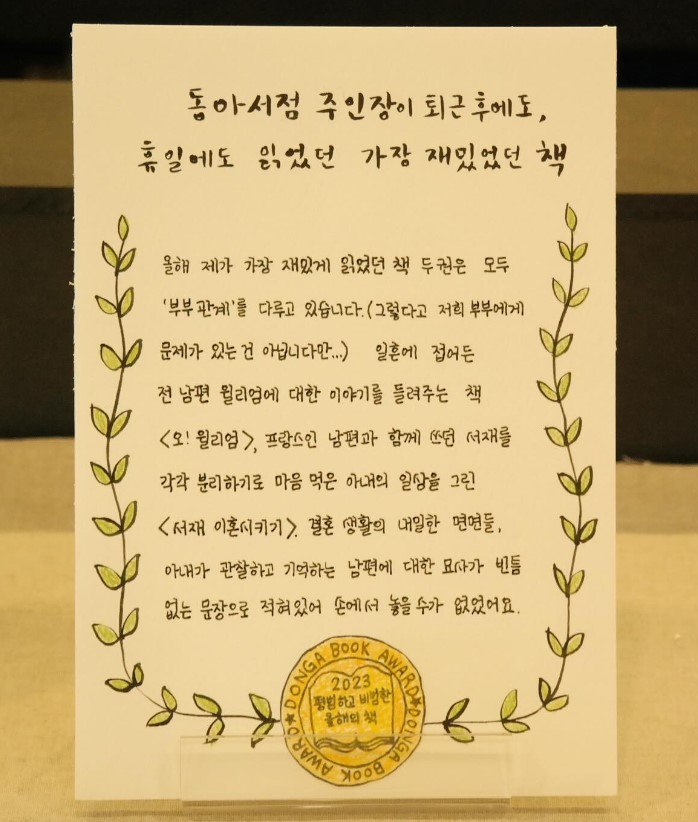 동아서점 주인장이 퇴근 후에도,
휴일에도 읽었던 가장 재밌었던 책
올해 제가 가장 재밌게 읽었던 책 두권은 모두
'부부 관계'를 다루고 있습니다. (그렇다고 저희 부부에게
문제가 있는 건 아닙니다만...) 일흔에 접어든
전 남편 윌리엄에 대한 이야기를 들려주는 책
<오! 윌리엄>, 프랑스인 남편과 함께 쓰던 서재를
각각 분리하기로 마음 먹은 아내의 일상을 그린
<서재 이혼시키기>. 결혼 생활의 내밀한 면면들,
아내가 관찰하고 기억하는 남편에 대한 묘사가 빈틈
없는 문장으로 적혀있어 손에서 놓을 수가 없었어요.
DONGA BOOK AWARD ★ DONGA BOOK AWARD ★
2023
평범하고 비범한
올해의 책